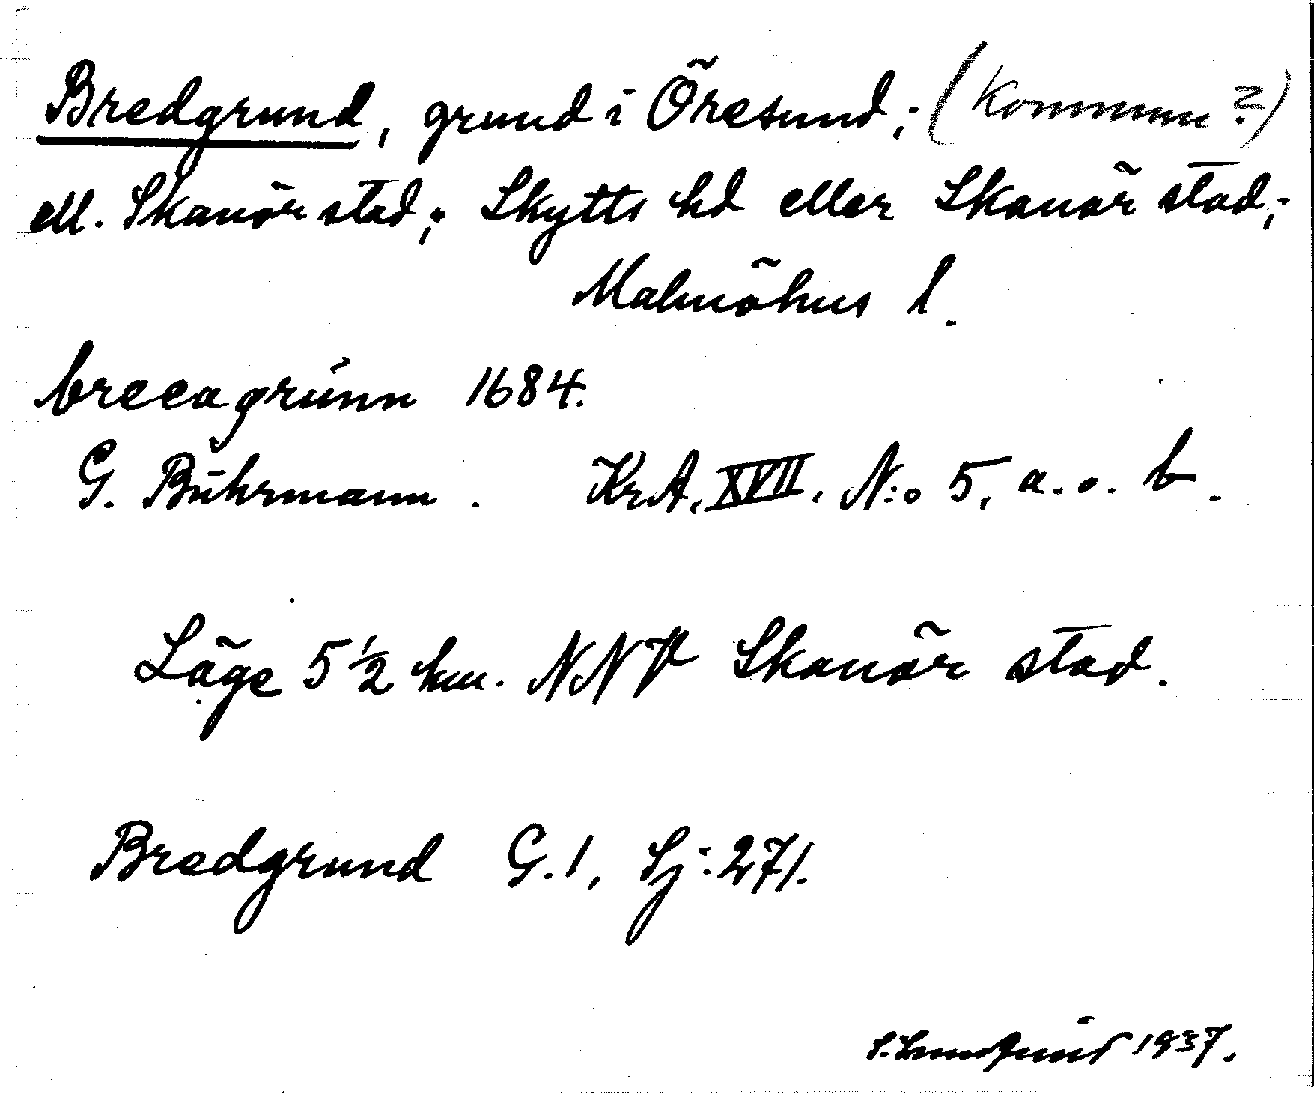 Bredgrund, grund i Öresund; (Kommun?)
ell. Skanör stad; Skytts hd eller Skanör stad;
Malmöhus l.
breeagrünn 1684.
G. Bührmann. KrA. XVII. N:o 5, a. o. b.
Läge 5 1/2 km. NNV Skanör stad.
Bredgrund G.1, Sj: 271.
1937.